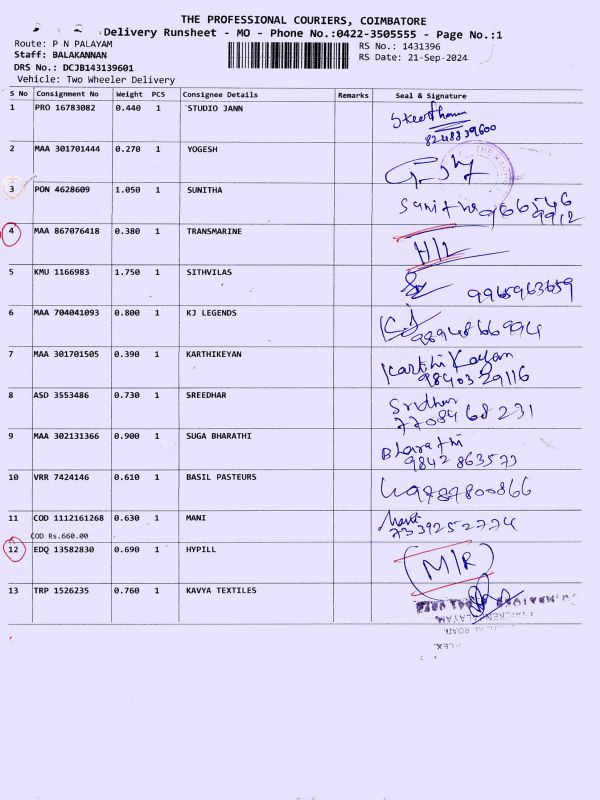 THE PROFESSIONAL COURIERS, COIMBATORE
Delivery Runsheet - MO - Phone No.:0422-3505555 - Page No.:1
Route: P N PALAYAM
RS No.: 1431396
Staff: BALAKANNAN
RS Date: 21-Sep-2024
DRS No.: DCJB143139601
Vehicle: Two Wheeler Delivery
S No Consignment No Weight PCS Consignee Details Remarks Seal & Signature
1 PRO 16783082 0.440 1 STUDIO JANN
8248839600
2 MAA 301701444 0.270 1 YOGESH
3 PON 4628609 1.050 1 SUNITHA Sunitha
9912
4 MAA 867076418 0.380 1 TRANSMARINE H/L
5 KMU 1166983 1.750 1 SITHVILAS 9965963659
6 MAA 704041093 0.800 1 KJ LEGENDS K.J
9894866994
7 MAA 301701505 0.390 1 KARTHIKEYAN Karthi Kayan
9840329116
8 ASD 3553486 0.730 1 SREEDHAR Sridhar
7708468231
9 MAA 302131366 0.900 1 SUGA BHARATHI Bharathi
9842863573
10 VRR 7424146 0.610 1 BASIL PASTEURS 9787800866
11 COD 1112161268 0.630 1 MANI Mani
7339252774
COD Rs.660.00
12 EDQ 13582830 0.690 1 HYPILL (M/R)
13 TRP 1526235 0.760 1 KAVYA TEXTILES